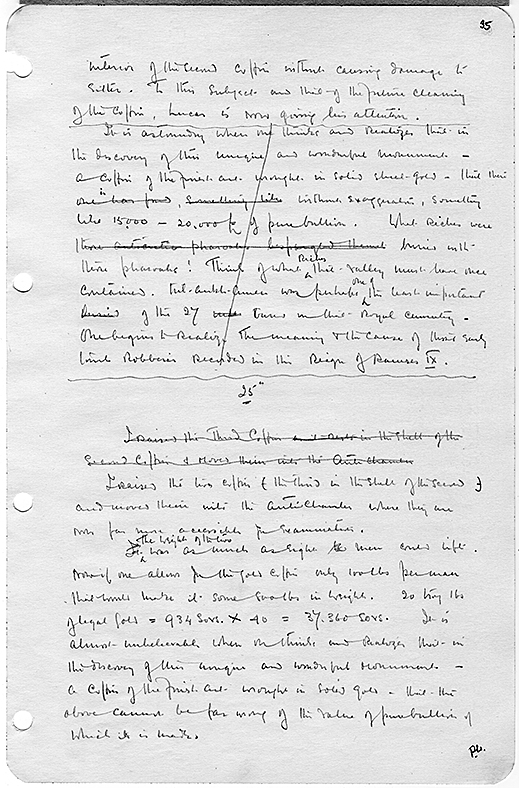 25
interior of the second Coffin without causing damage to
either. To this subject and that of the future cleaning
of the Coffin, Lucas is now giving his attention.
It is astounding when one thinks and realizes that in
the discovery of this unique and wonderful monument -
a Coffin of the finest art wrought in solid sheet-gold - that there
one has found, something like without exaggeration, something
like 15,000 - 20,000 of pure bullion. What riches were
those pharaohs buried with
those pharaohs! Think of what Riches that valley must have once
contained. Tut-ankh-Amen was perhaps one of the least important
of the 27 buried in this Royal Cemetery -
One begins to realize the meaning & the cause of those early
tomb Robberies Recorded in the Reign of Ramses IX.
25"
I raised the Third Coffin and rests in the shell of the
Second Coffin & moved them into the Antechamber
I raised the two Coffin (the third in the shell of the second)
and moved them into the Antechamber where they are
now far more accessible for examination.
The weight of the two
It was as much as eight men could lift.
Now if one allows for the gold Coffin only 100 lbs per man
that would make it some 800 lbs in weight. 20 troy lbs
of legal gold = 934 Sovs. × 40 = 37,360 Sovs. It is
almost unbelievable when one thinks and realizes that in
the discovery of this unique and wonderful monument -
a Coffin of the finest art wrought in solid gold - that the
above cannot be far wrong of the value of pure bullion of
which it is made.